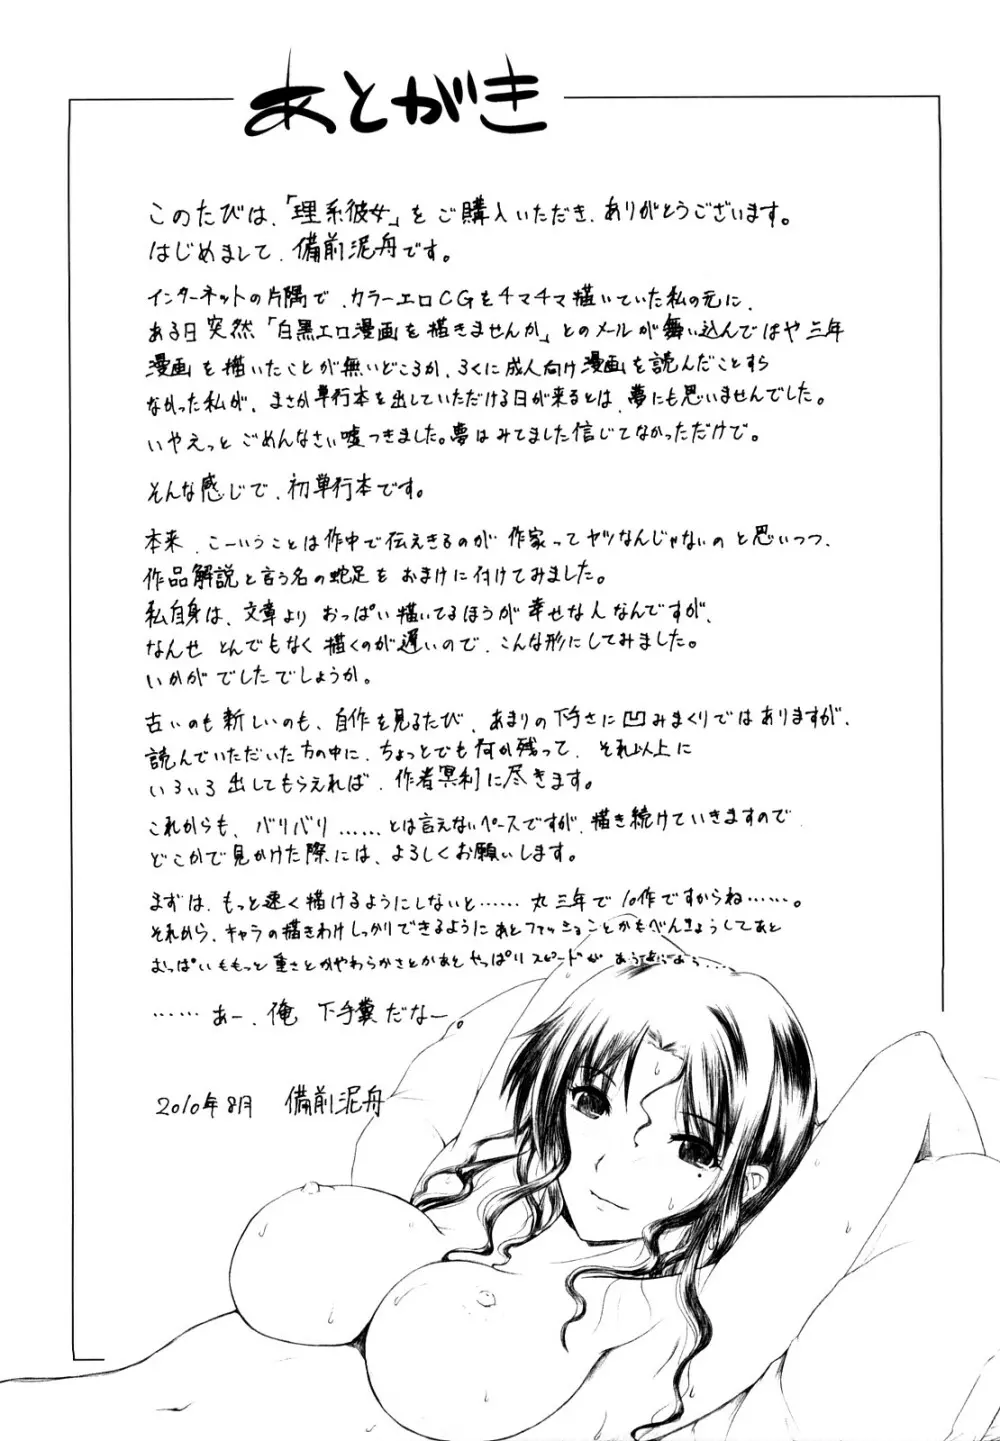 あとがき
このたびは、「理系彼女」をご購入いただき、ありがとうございます。
はじめまして、備前泥舟です。
インターネットの片隅で、カラーエロCGをチマチマ描いていた私の元に、
ある日突然「白黒エロ漫画を描きませんか」とのメールが舞い込んではや三年
漫画を描いたことが無いどころか、ろくに成人向け漫画を読んだことすら
なかった私が、まさか単行本を出していただける日が来るとは、夢にも思いませんでした。
いやえっと ごめんなさい嘘つきました。夢はみてました信じてなかっただけで。
そんな感じで、初単行本です。
本来、こーいうことは作中で伝えきるのが 作家ってヤツなんじゃないの と思いつつ、
作品解説と言う名の蛇足を おまけに付けてみました。
私自身は、文章より おっぱい描いてるほうが 幸せな人なんですが、
なんせ とんでもなく 描くのが遅いので、こんな形にしてみました。
いかがでしたでしょうか。
古いのも新しいのも、自作を見るたび、あまりの下手さに凹みまくりではありますが、
読んでいただいた方の中に、ちょっとでも何か残って、それ以上に
いろいろ出してもらえれば、作者冥利に尽きます。
これからも、バリバリ……とは言えないペースですが、描き続けていきますので、
どこかで見かけた際には、よろしくお願いします。
まずは、もっと速く描けるようにしないと……丸三年で10作ですからね……。
それから、キャラの描きわけしっかりできるようにあとファッションとかもべんきょうしてあと
おっぱいももっと重さとかやわらかさとかあとやっぱりスピードが
……あー、俺 下手糞だなー。
2010年8月 備前泥舟